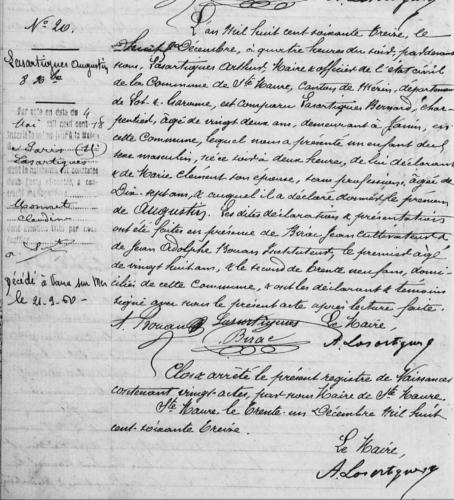 N° 20.
Lasartigues Augustin
8 Xbre
Par acte en date du 4
Mai mil neuf cent 18
Paris
Lasartigues
Monnet
Claudine
Décédé à Vaux sur Mer
le 21-9-60
L'an Mil huit cent soixante Treize, le
huit Décembre, à quatre heures du soir, pardevant
nous, Lasartigues Arthur, Maire & officier de l'état civil
de la Commune de Ste Maure, Canton de Mézin, département
de Lot & Garonne, est comparu Lasartigues Bernard, char-
pentier, âgé de vingt deux ans, demeurant à Janin, en
cette Commune, lequel nous a présenté un enfant du s
exe masculin, né ce soir à deux heures, de lui déclarant
& de Marie Clement son épouse, sans profession, âgée de
Dix sept ans, & auquel il a déclaré donner le prénom
de Augustin. Les dites déclaration & présentation
ont été faites en présence de Birac Jean cultivateur &
de Jean Adolphe Bouan Instituteur, le premier âgé
de vingt huit ans, & le second de trente neuf ans, domi-
ciliés de cette Commune, & ont les déclarant & témoins
signé avec nous le présent acte après lecture faite.
A. Bouan Lasartigues Le Maire,
Birac A. Lasartigues
Clos & arrêté le présent registre de Naissances
contenant vingt actes, par nous Maire de Ste Maure.
Ste Maure le Trente-un Décembre Mil huit
cent soixante Treize.
Le Maire,
A. Lasartigues